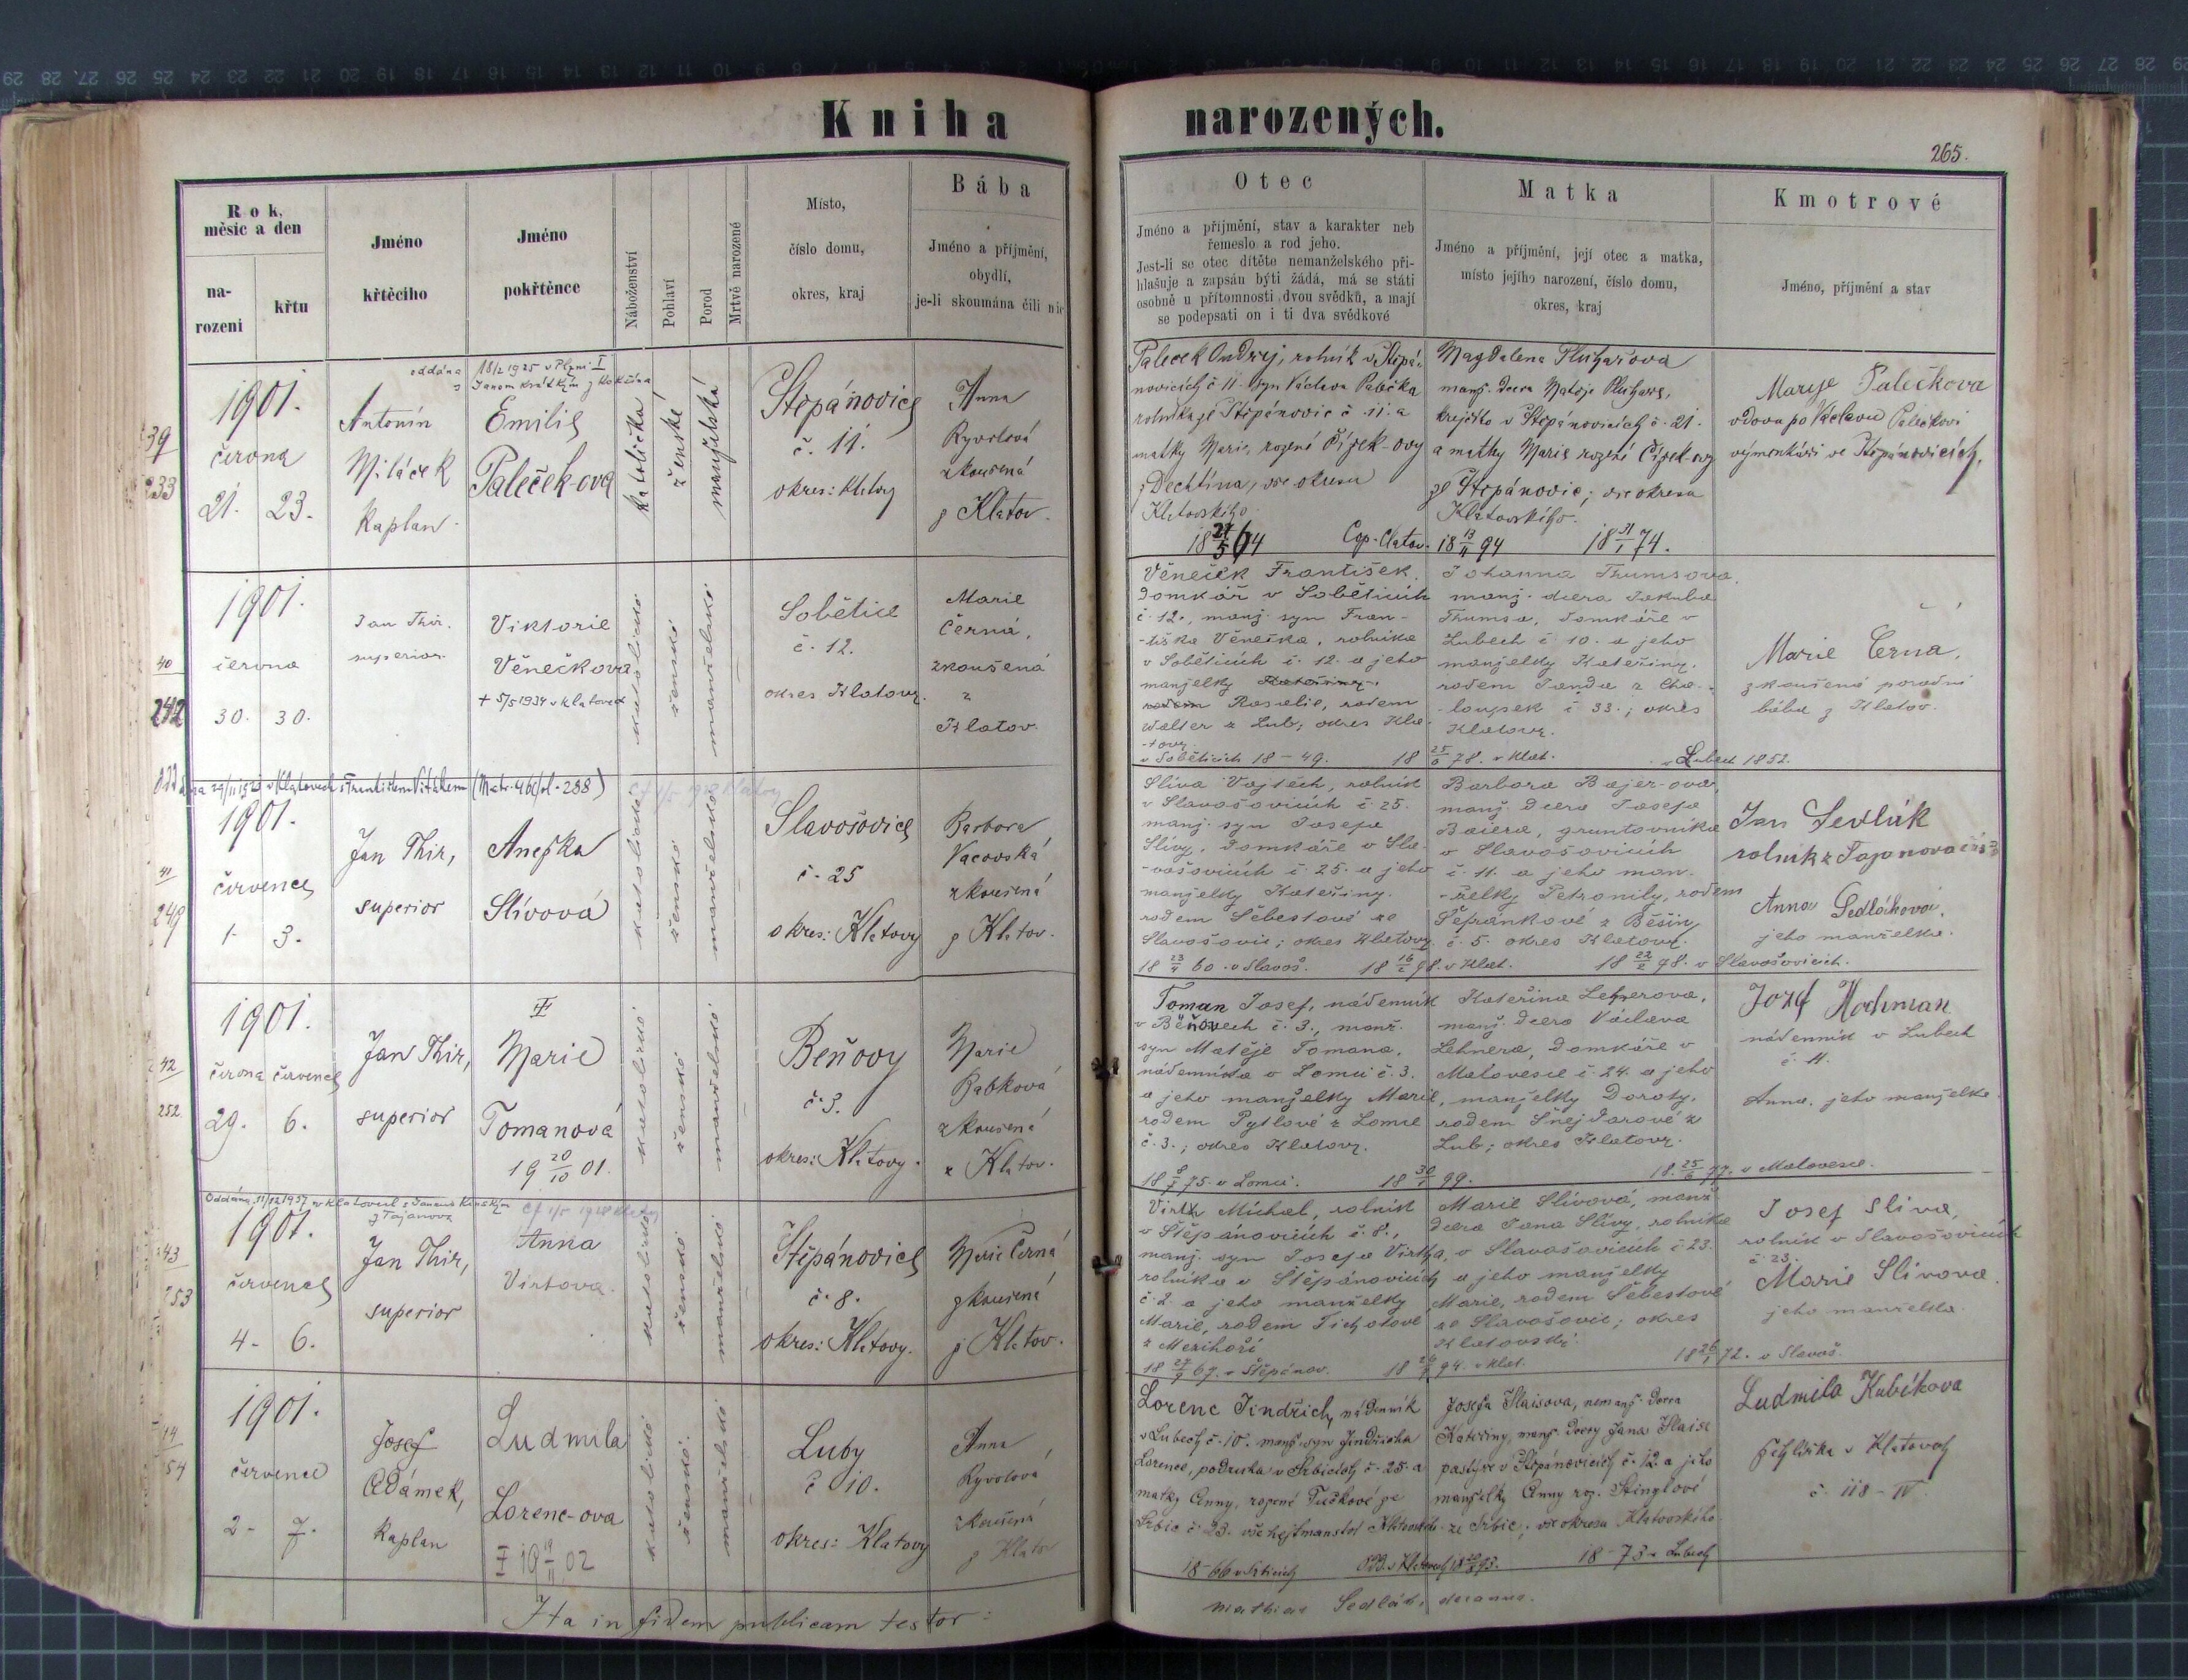 Kniha narozených.
265.
Rok,
měsíc a den
na-
rození
křtu
Jméno
křtěcího
Jméno
pokřtěnce
Náboženství
Pohlaví
Porod
Mrtvě narozené
Místo,
číslo domu,
okres, kraj
Bába
Jméno a příjmění,
obydlí,
je-li skoumána čili nic
Otec
Jméno a příjmění, stav a karakter neb
řemeslo a rod jeho.
Jest-li se otec dítěte nemanželského při-
hlašuje a zapsán býti žádá, má se státi
osobně u přítomnosti dvou svědků, a mají
se podepsati on i ti dva svědkové
Matka
Jméno a příjmění, její otec a matka,
místo jejího narození, číslo domu,
okres, kraj
Kmotrové
Jméno, příjmění a stav
39
233
1901.
června
21. 23.
Antonín
Miláček
kaplan
oddána 18/2 1925 v Plzni I
Emilie
Paleček-ova
katolička
ženské
manželská
Štěpánovice
č. 11.
okres: Klatovy
Anna
Ryvolová
zkoušená
z Klatov.
Paleček Ondřej, rolník v Štěpá-
novicích č 11. syn Václava Palečka
rolníka ze Štěpánovic č. 11. a
matky Marie, rozené Čížek-ovy
z Dechtína, vše okresu
Klatovského.
Cop. Klatov. 18 13/11 94
Magdalena Pluhařova
manž. dcera Matěje Pluhaře,
krejčího v Štěpánovicích č. 21.
a matky Marie rozené Čížek-ovy
ze Štěpánovic; vše okresu
Klatovského.
18 31/1 74.
Marye Palečkova
vdova po Václavu Palečkovi
výmenkáři ve Štěpánovicích.
40
242
1901.
června
30. 30.
Jan Thir.
superior.
Viktorie
Věnečkova
+ 5/5 1934 v Klatovech
katolické
ženské
manželské
Sobětice
č. 12.
okres Klatovy.
Marie
Černá,
zkoušená
z
Klatov.
Věneček František,
domkář v Soběticích
č. 12., manž. syn Fran-
-tiška Věnečka, rolníka
v Soběticích č. 12. a jeho
manželky Kateřiny,
rodem Rosalie, rodem
Walter z Lub; okres Kla-
-tovy.
v Soběticích 18 - 49. 18 25/6 78. v Klat.
Johanna Thumsova,
manž. dcera Jakuba
Thumsa, domkáře v
Lubech č. 10. a jeho
manželky Kateřiny,
rodem Janda z Cha-
-loupek č 33.; okres
Klatovy.
v Lubech 1852.
Marie Černá,
zkoušená porodní
bába z Klatov.
41
249
1901.
července
1. 3.
Jan Thir,
superior
Anežka
Slívová
katolické
ženské
manželské
Slavošovice
č. 25
okres: Klatovy
Barbora
Vacovská
zkoušená
z Klatov.
Slíva Vojtěch, rolník
v Slavošovicích č. 25.
manž. syn Josefa
Slívy, domkáře v Sla-
-vošovicích č. 25. a jeho
manželky Kateřiny,
rodem Šebestové ze
Slavošovic; okres Klatovy
18 23/4 60. v Slavoš. 18 16/2 98. v Klat.
Barbora Bajer-ova,
manž. dcera Josefa
Baiera, gruntovníka
v Slavošovicích
č. 11. a jeho man-
-želky Petronily, rodem
Štěpánkové z Běšin
č. 5. okres Klatovy.
18 22/2 78. v Slavošovicích.
Jan Sedlák
rolník z Tajanova
Anna Sedláková,
jeho manželka.
42
252
1901.
června července
29. 6.
Jan Thir,
superior
Marie
Tomanová
19 20/10 01.
katolické
ženské
manželské
Beňovy
č. 3.
okres: Klatovy.
Marie
Babková
zkoušená
z Klatov.
Toman Josef, nádenník
v Beňovech č. 3., manž.
syn Matěje Tomana,
nádenníka v Lomci č. 3.
a jeho manželky Marie,
rodem Pytlové z Lomce
č. 3.; okres Klatovy.
18 8/7 75. v Lomci. 18 30/7 99.
Kateřina Lehnerova,
manž. dcera Václava
Lehnera, domkáře v
Malovesce č. 24. a jeho
manželky Doroty,
rodem Šnejdarové z
Lub; okres Klatovy.
18 25/6 77. v Malovesce.
Josef Hochman
nádenník v Lubech
č. 11.
Anna, jeho manželka.
43
253
1901.
července
4. 6.
Jan Thir,
superior
Anna
Virtova.
katolické
ženské
manželské
Štěpánovice
č. 8.
okres: Klatovy.
Marie Černá
zkoušená
z Klatov.
Virth Michal, rolník
v Štěpánovicích č. 8.,
manž. syn Josefa Virtha,
rolníka v Štěpánovicích
č. 2. a jeho manželky
Marie, rodem Tichotové
z Mezihoří
18 27/9 67. v Štěpánov.
Marie Slívová, manž
dcera Jana Slívy, rolníka
v Slavošovicích č 23.
a jeho manželky
Marie, rodem Šebestové
ze Slavošovic; okres
Klatovský.
18 26/1 72. v Slavoš.
Josef Slíva,
rolník v Slavošovicích
č. 23.
Marie Slívova
jeho manželka.
54
1901.
července
2. 7.
Josef
Adámek,
kaplan
Ludmila
Lorenc-ova
katolické
ženské.
manželské
Luby
č 10.
okres: Klatovy
Anna
Ryvolová
zkoušená
z Klatov
Lorenc Jindřich, nádenník
v Lubech č. 10. manž. syn Jindřicha
Lorence, podruha v Srbicích č. 25. a
matky Anny, rozené Tučkové ze
Srbic č. 23. vše hejtmanství Klatovské.
18 - 66 v Srbicích
Josefa Hlaisova, nemanž. dcera
Kateřiny, manž. dcery Jana Hlaise
pastýře v Štěpánovicích č. 12. a jeho
manželky Anny roz. Štinglové
ze Srbic; vše okresu Klatovského.
18 - 73 v Lubech
Ludmila Kubíkova
v Klatovech
č. 118 - IV
Ita in fidem publicam testor:
Mathias Sedlák, decanus.